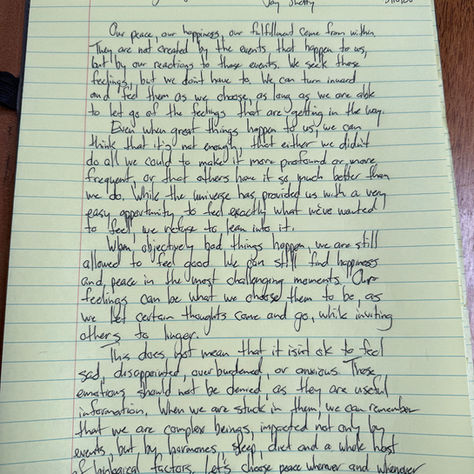 Jay Shetty
Our peace, our happiness, our fulfillment come from within.
They are not created by the events that happen to us,
but by our reactions to those events. We seek those
feelings, but we don't have to. We can turn inward
and feel them as we choose, as long as we are able
to let go of the feelings that are getting in the way.
Even when great things happen to us, we can
think that it's not enough, that either we didn't
do all we could to make it more profound or more
frequent, or that others have it so much better than
we do. While the universe has provided us with a very
easy opportunity to feel exactly what we've wanted
to feel, we refuse to lean into it.
When objectively bad things happen, we are still
allowed to feel good. We can still find happiness
and peace in the most challenging moments. Our
feelings can be what we choose them to be, as
we let certain thoughts come and go, while inviting
others to linger.
This does not mean that it isn't ok to feel
sad, disappointed, overburdened, or anxious. Those
emotions should not be denied, as they are useful
information. When we are stuck in them, we can remember
that we are complex beings, impacted not only by
events, but by hormones, sleep, diet and a whole host
of biological factors. Let's choose peace wherever and whenever